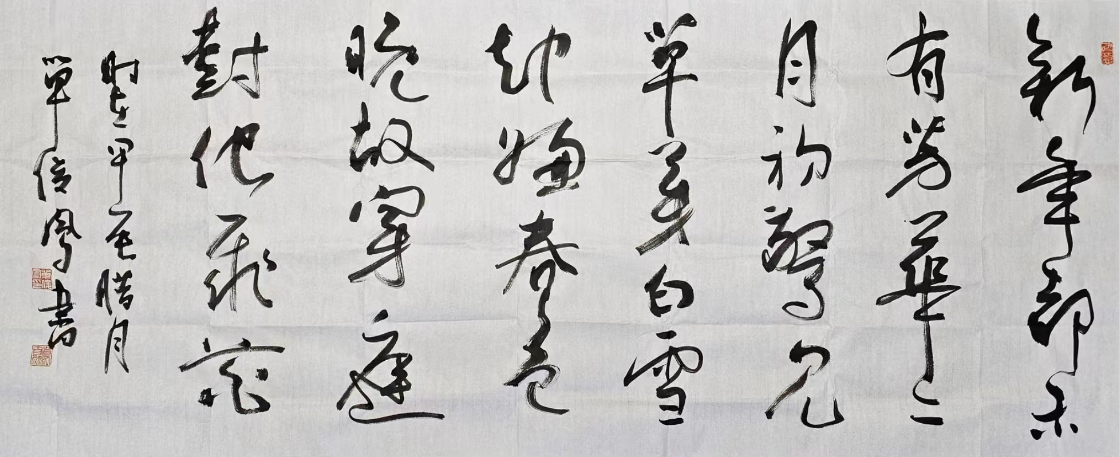 新年都未
有芳華二
月初驚見
草芽白雪
却嫌春色
晚故穿庭
樹作飛花
時在甲辰臘月
單鳳書